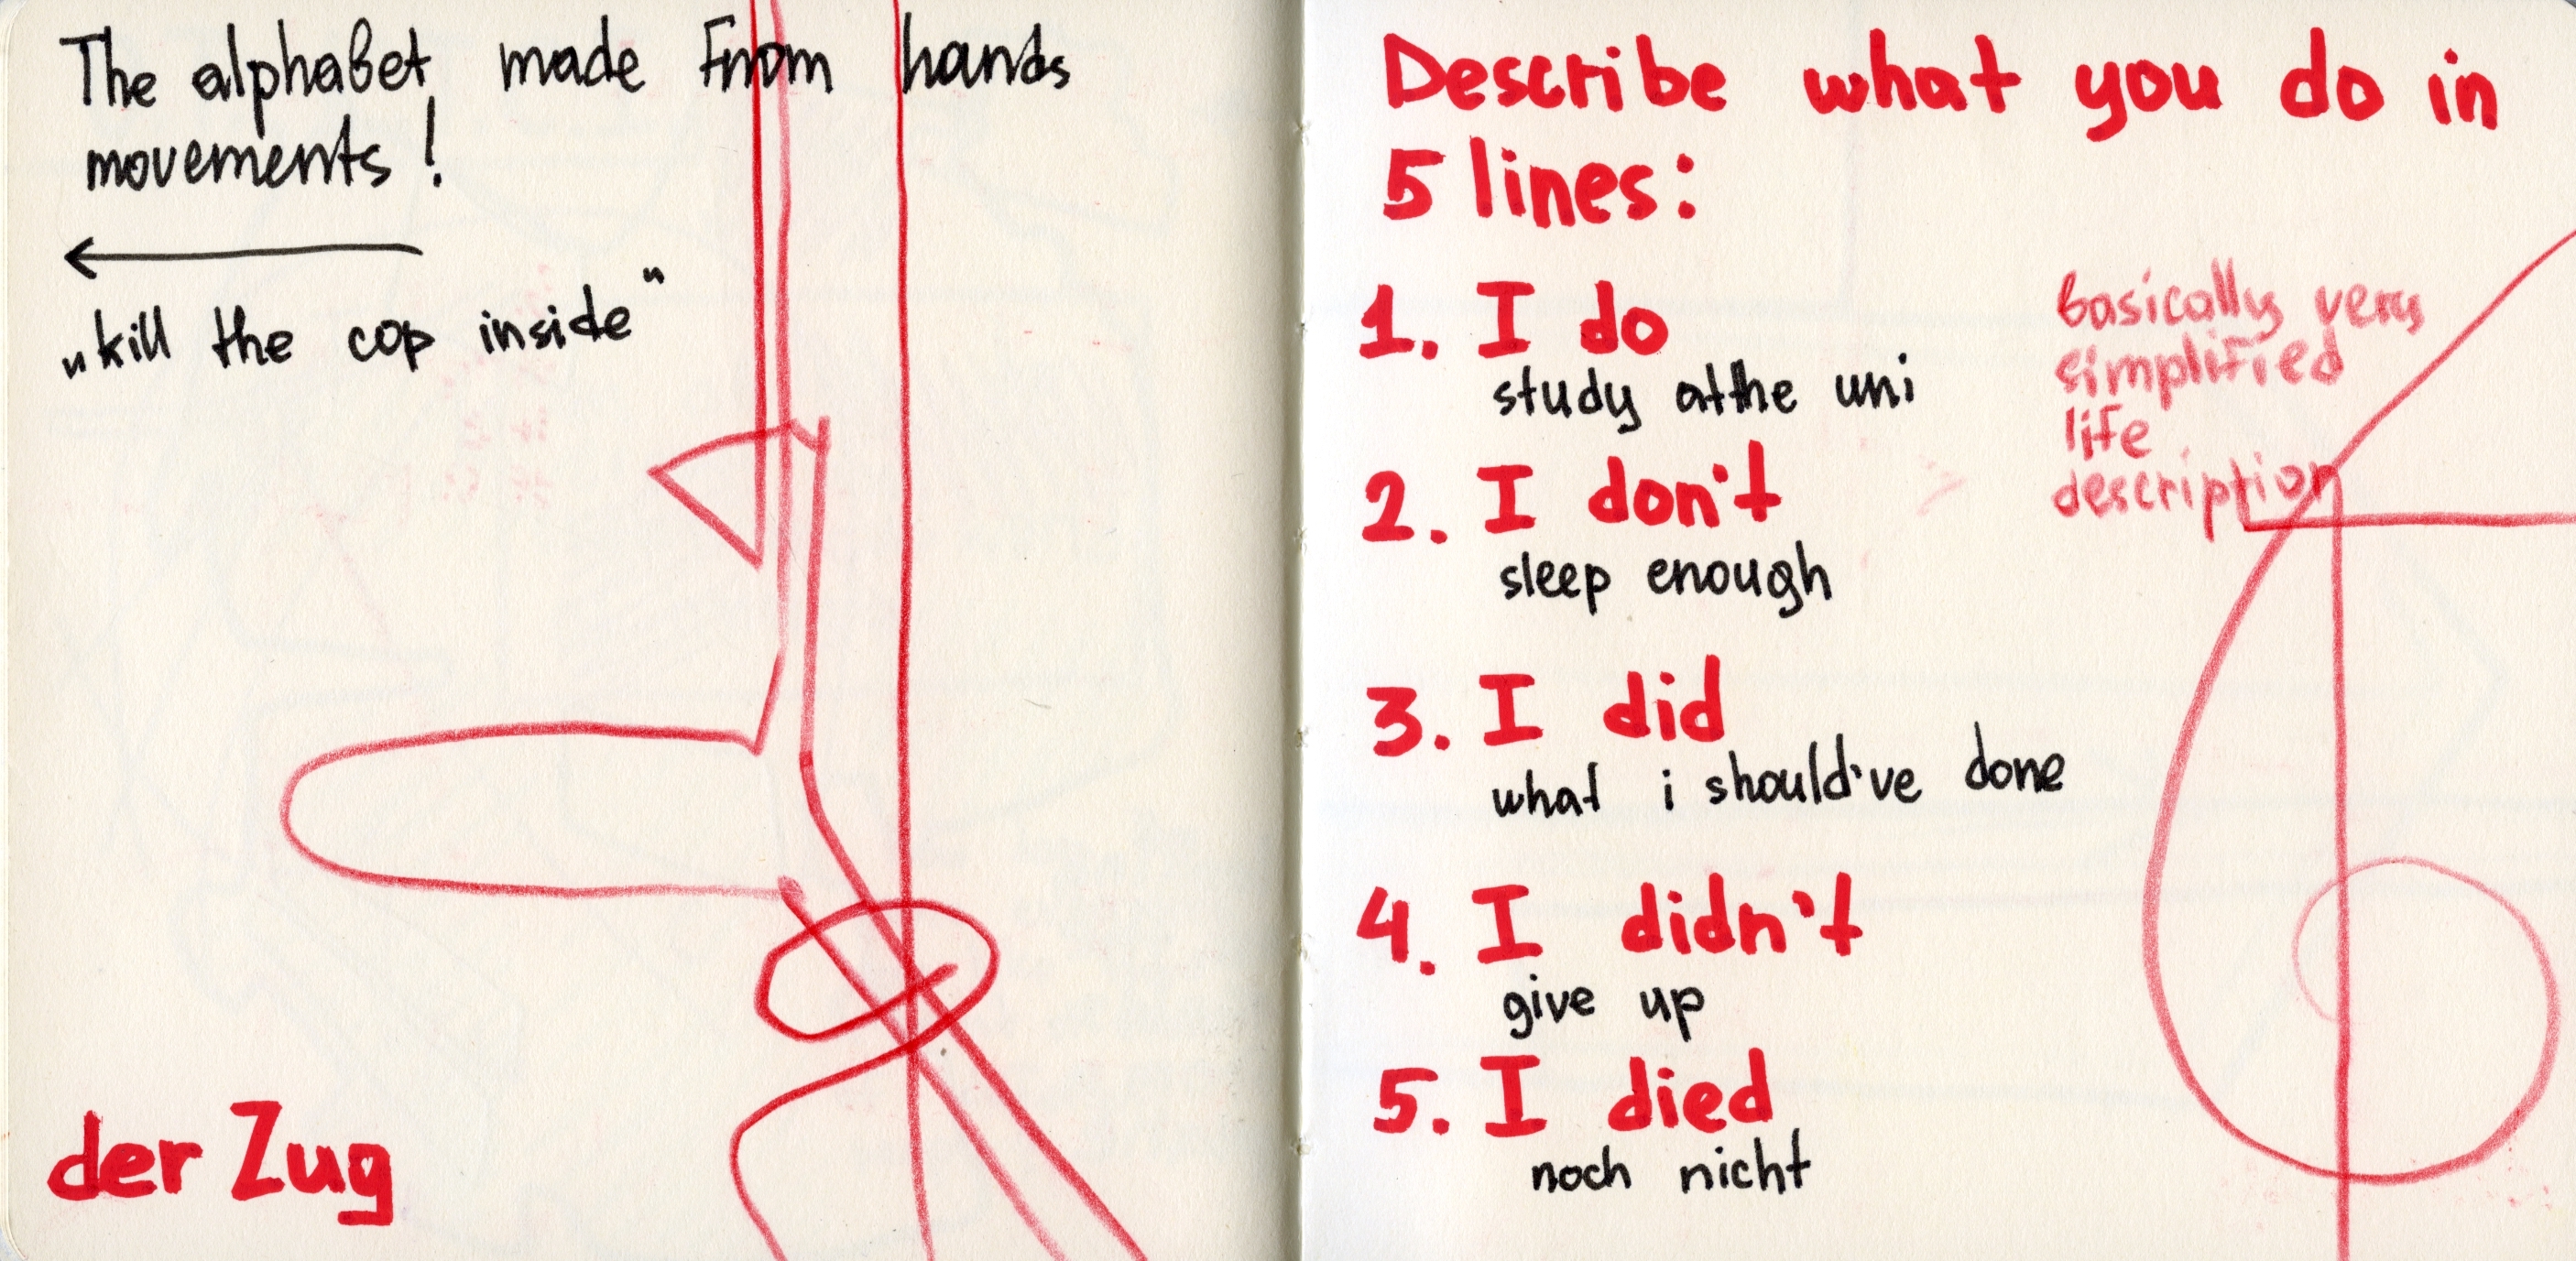 The alphabet made from hands
movements!
„kill the cop inside"
der Zug
Describe what you do in
5 lines:
1. I do
study at the uni
2. I don't
sleep enough
3. I did
what i should've done
4. I didn't
give up
5. I died
noch nicht
basically very
simplified
life
description